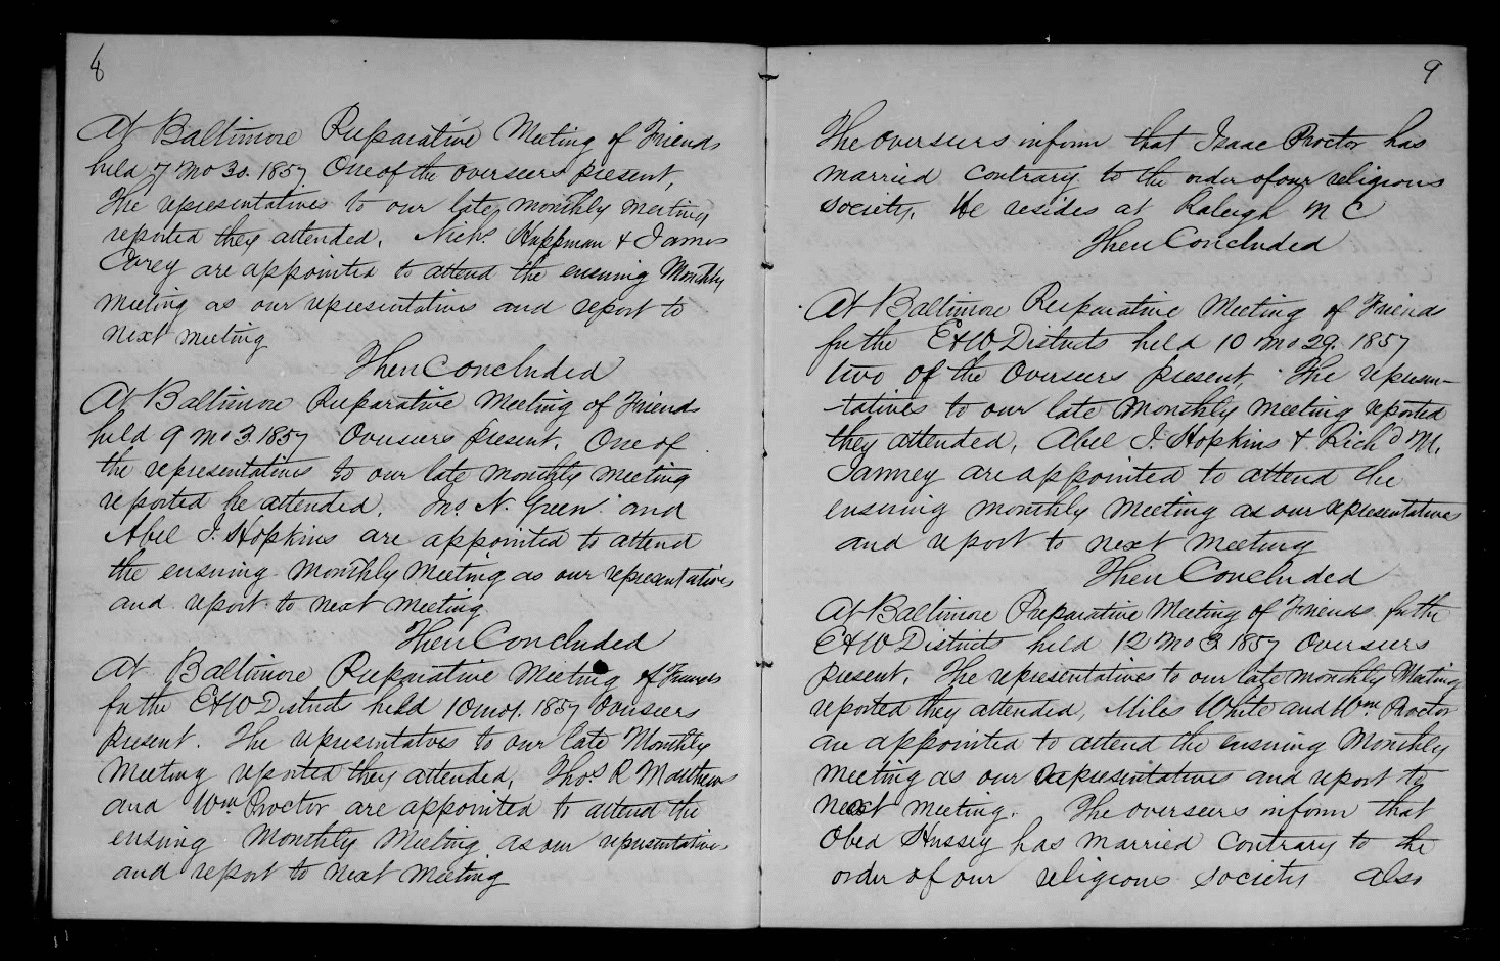 8
At Baltimore Preparative Meeting of Friends
held 7 mo 30. 1857 One of the overseers present,
The representatives to our late monthly meeting
reported they attended. Nichs Hoppman & James
Carey are appointed to attend the ensuing Monthly
meeting as our representatives and report to
next meeting
Then Concluded
At Baltimore Preparative Meeting of Friends
held 9 mo 3. 1857 Overseers present. One of
the representatives to our late monthly meeting
reported he attended. Jno. N. Green and
Abel J. Hopkins are appointed to attend
the ensuing monthly meeting as our representatives
and report to next meeting.
Then Concluded
At Baltimore Preparative Meeting of Friends
for the E & W Districts held 10 mo 1. 1857 Overseers
present. The representatives to our late Monthly
Meeting reported they attended, Thos. R Matthews
and Wm Proctor are appointed to attend the
ensuing Monthly Meeting as our representatives
and report to next meeting
9
The overseers inform that Isaac Proctor has
married contrary to the order of our religious
society. He resides at Raleigh N C
Then Concluded
At Baltimore Preparative Meeting of Friends
for the E & W Districts held 10 mo 29. 1857
two of the Overseers present, The represen-
tatives to our late Monthly Meeting reported
they attended, Abel J. Hopkins & Richd M.
Janney are appointed to attend the
ensuing monthly meeting as our representatives
and report to next meeting
Then Concluded
At Baltimore Preparative Meeting of Friends for the
E & W Districts held 12 mo 3. 1857 Overseers
present. The representatives to our late monthly Meeting
reported they attended, Miles White and Wm Proctor
are appointed to attend the ensuing Monthly
meeting as our representatives and report to
next meeting. The overseers inform that
Obed Hussey has married contrary to the
order of our religious society also